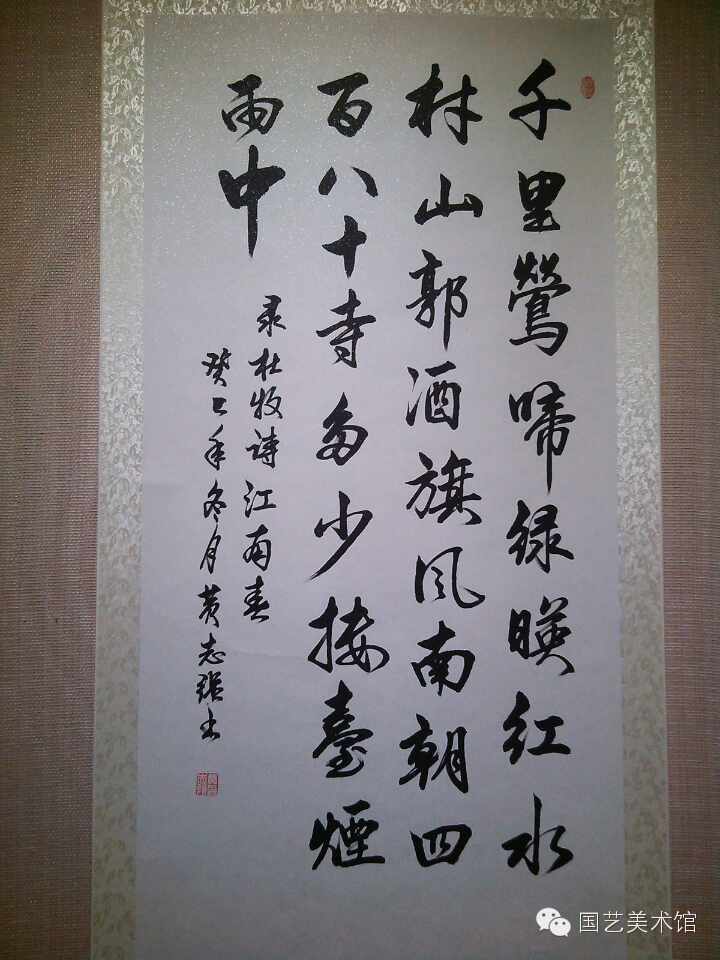 千里鶯啼绿暎红水
村山郭酒旗风南朝四
百八十寺多少楼臺煙
雨中
录杜牧诗江南春
癸巳年冬月黄志强书
国艺美术馆